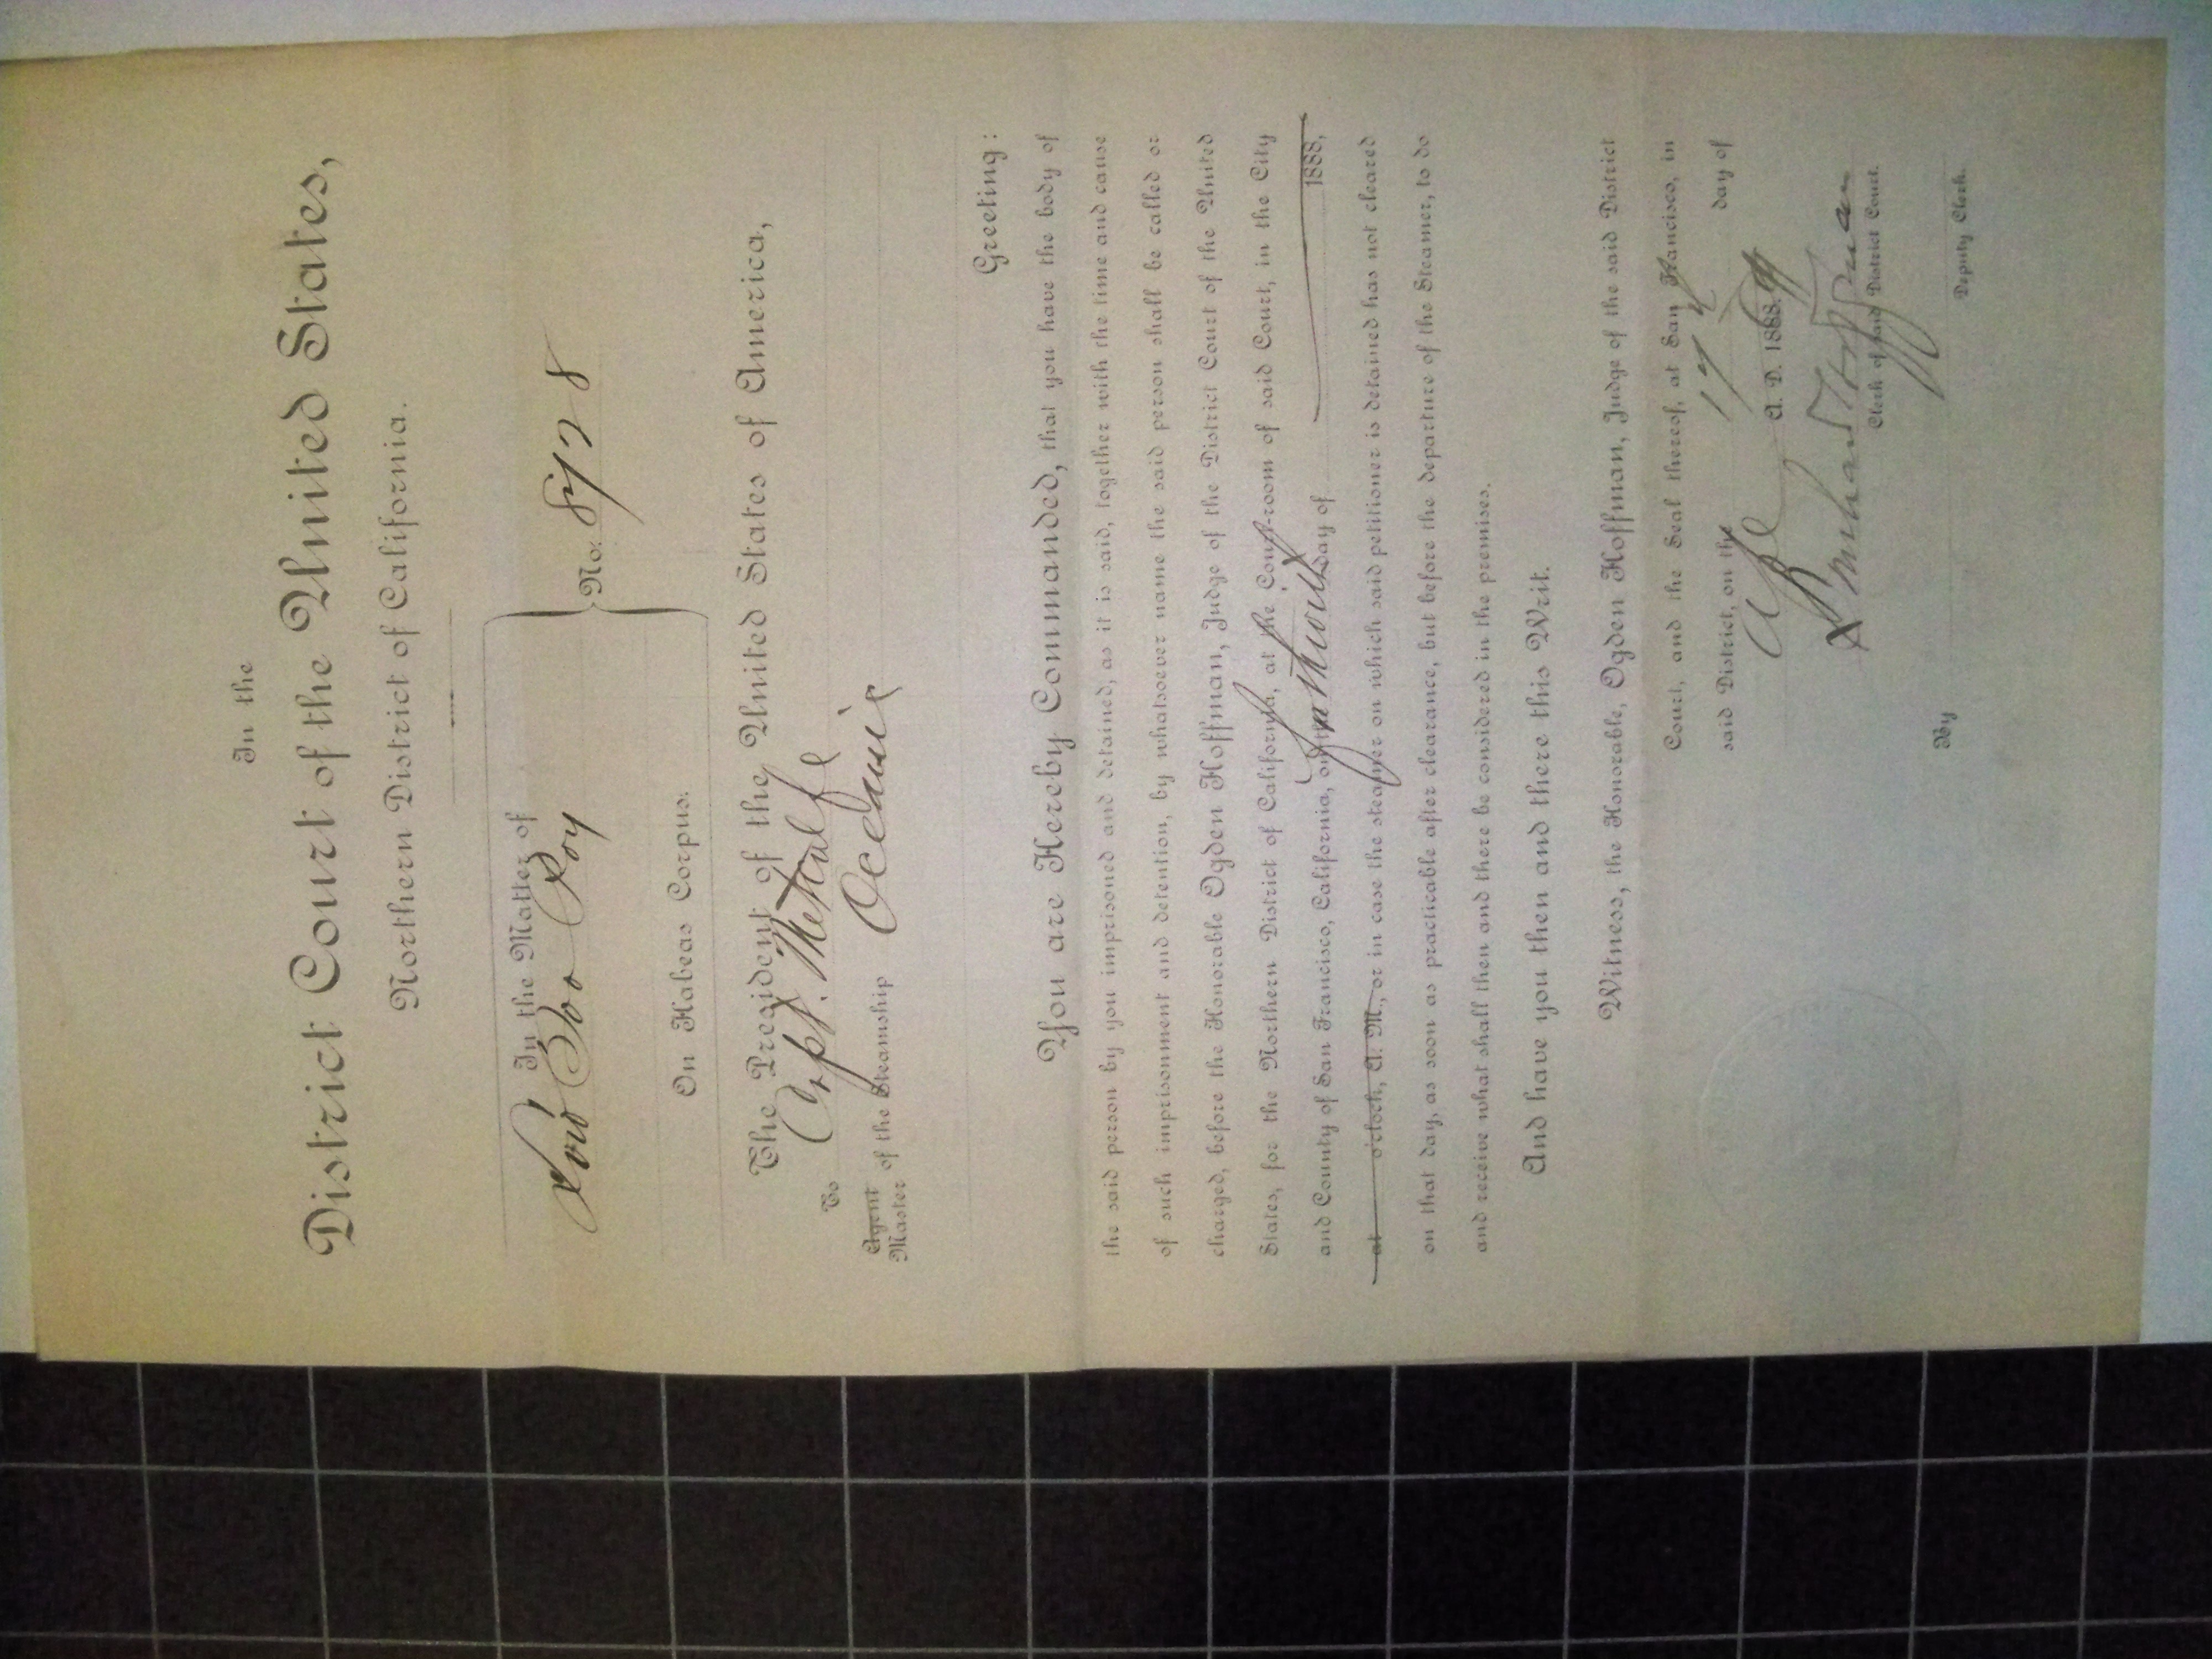 In the
District Court of the United States,
Northern District of California.
In the Matter of
On Habeas Corpus.
No. 8728
The President of the United States of America,
To Capt. Metcalfe
Agent
Master of the Steamship Oceanic
Greeting:
You are Hereby Commanded, that you have the body of
the said person by you imprisoned and detained, as it is said, together with the time and cause
of such imprisonment and detention, by whatsoever name the said person shall be called or
charged, before the Honorable Ogden Hoffman, Judge of the District Court of the United
States, for the Northern District of California, at the Court-room of said Court, in the City
and County of San Francisco, California, on day of 1888,
at o'clock, A. M., or in case the steamer on which said petitioner is detained has not cleared
on that day, as soon as practicable after clearance, but before the departure of the Steamer, to do
and receive what shall then and there be considered in the premises.
And have you then and there this Writ.
Witness, the Honorable, Ogden Hoffman, Judge of the said District
Court, and the Seal thereof, at San Francisco, in
said District, on the 17 day of
A. D. 1888.
Clerk of said District Court.
By
Deputy Clerk.